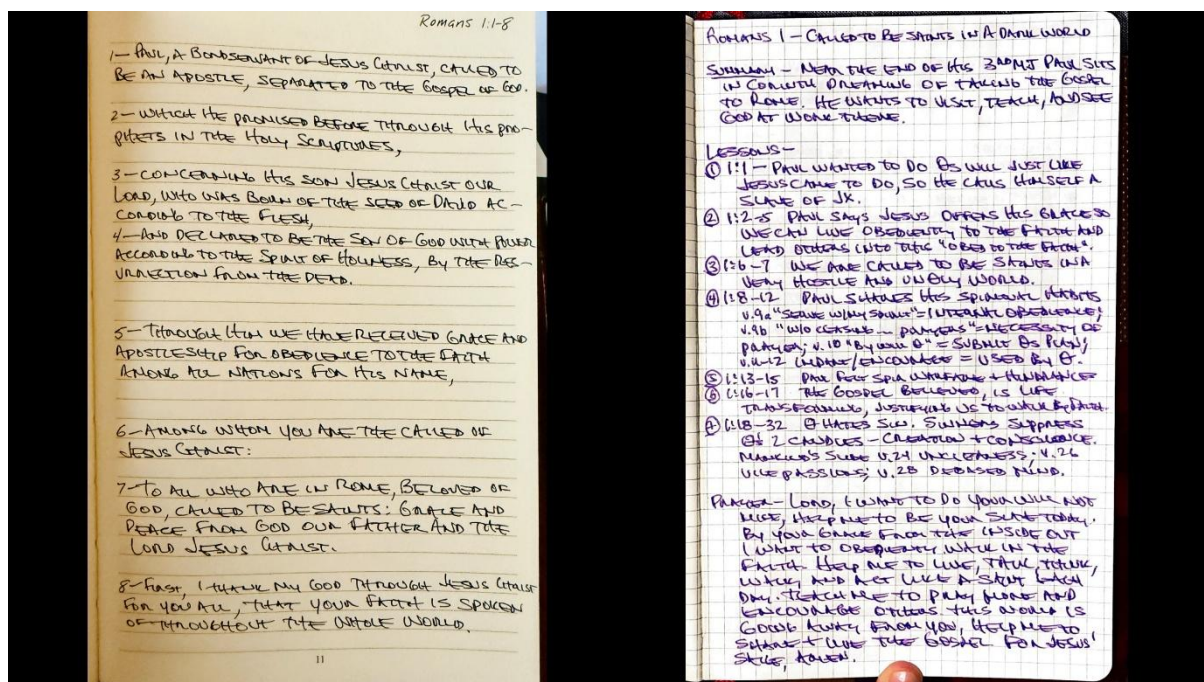 Romans 1:1-8
1- PAUL, A BONDSERVANT OF JESUS CHRIST, CALLED TO
BE AN APOSTLE, SEPARATED TO THE GOSPEL OF GOD.
2- WHICH HE PROMISED BEFORE THROUGH HIS PRO-
PHETS IN THE HOLY SCRIPTURES,
3- CONCERNING HIS SON JESUS CHRIST OUR
LORD, WHO WAS BORN OF THE SEED OF DAVID AC-
CORDING TO THE FLESH,
4- AND DECLARED TO BE THE SON OF GOD WITH POWER
ACCORDING TO THE SPIRIT OF HOLINESS, BY THE RES-
URRECTION FROM THE DEAD.
5- THROUGH HIM WE HAVE RECEIVED GRACE AND
APOSTLESHIP FOR OBEDIENCE TO THE FAITH
AMONG ALL NATIONS FOR HIS NAME,
6- AMONG WHOM YOU ARE THE CALLED OF
JESUS CHRIST:
7- TO ALL WHO ARE IN ROME, BELOVED OF
GOD, CALLED TO BE SAINTS: GRACE AND
PEACE FROM GOD OUR FATHER AND THE
LORD JESUS CHRIST.
8- FIRST, I THANK MY GOD THROUGH JESUS CHRIST
FOR YOU ALL, THAT YOUR FAITH IS SPOKEN
OF THROUGHOUT THE WHOLE WORLD.
11
ROMANS 1 - CALLED TO BE SAINTS IN A DARK WORLD
SUMMARY - NEAR THE END OF HIS 3RD MJ PAUL SITS
IN CORINTH DREAMING OF TAKING THE GOSPEL
TO ROME. HE WANTS TO VISIT, TEACH, AND SEE
GOD AT WORK THERE.
LESSONS -
① 1:1 - PAUL WANTED TO DO Θs WILL JUST LIKE
JESUS CAME TO DO, SO HE CALLS HIMSELF A
SLAVE OF JX.
② 1:2-5 PAUL SAYS JESUS OFFERS HIS GRACE SO
WE CAN LIVE OBEDIENTLY TO THE FAITH AND
LEAD OTHERS INTO THIS "OBED TO THE FAITH".
③ 1:6-7 WE ARE CALLED TO BE SAINTS IN A
VERY HOSTILE AND UNGODLY WORLD.
④ 1:8-12 PAUL SHARES HIS SPIRITUAL HABITS
v.9a "SERVE W/MY SPIRIT" = INTERNAL OBEDIENCE;
v.9b "W/O CEASING... PRAYERS" = NECESSITY OF
PRAYER; v.10 "BY WILL Θ" = SUBMIT Θs PLAN;
v.11-12 IMPART/ENCOURAGE = USED BY Θ.
⑤ 1:13-15 PAUL FELT SPIR WARFARE + HINDRANCE
⑥ 1:16-17 THE GOSPEL BELIEVED, IS LIFE
TRANSFORMING, JUSTIFYING US TO WALK BY FAITH.
⑦ 1:18-32 Θ HATES SIN. SINNERS SUPPRESS
Θs 2 CANDLES - CREATION + CONSCIENCE.
MANKIND'S SLIDE v.24 UNCLEANESS; v.26
VILE PASSIONS; v.28 DEBASED MIND.
PRAYER - LORD, I WANT TO DO YOUR WILL NOT
MINE, HELP ME TO BE YOUR SLAVE TODAY.
BY YOUR GRACE FROM THE INSIDE OUT
I WANT TO OBEDIENTLY WALK IN THE
FAITH. HELP ME TO LIVE, TALK, THINK,
WALK, AND ACT LIKE A SAINT EACH
DAY. TEACH ME TO PRAY MORE AND
ENCOURAGE OTHERS. THIS WORLD IS
GOING AWAY FROM YOU, HELP ME TO
SHARE + LIVE THE GOSPEL FOR JESUS'
SAKE, AMEN.